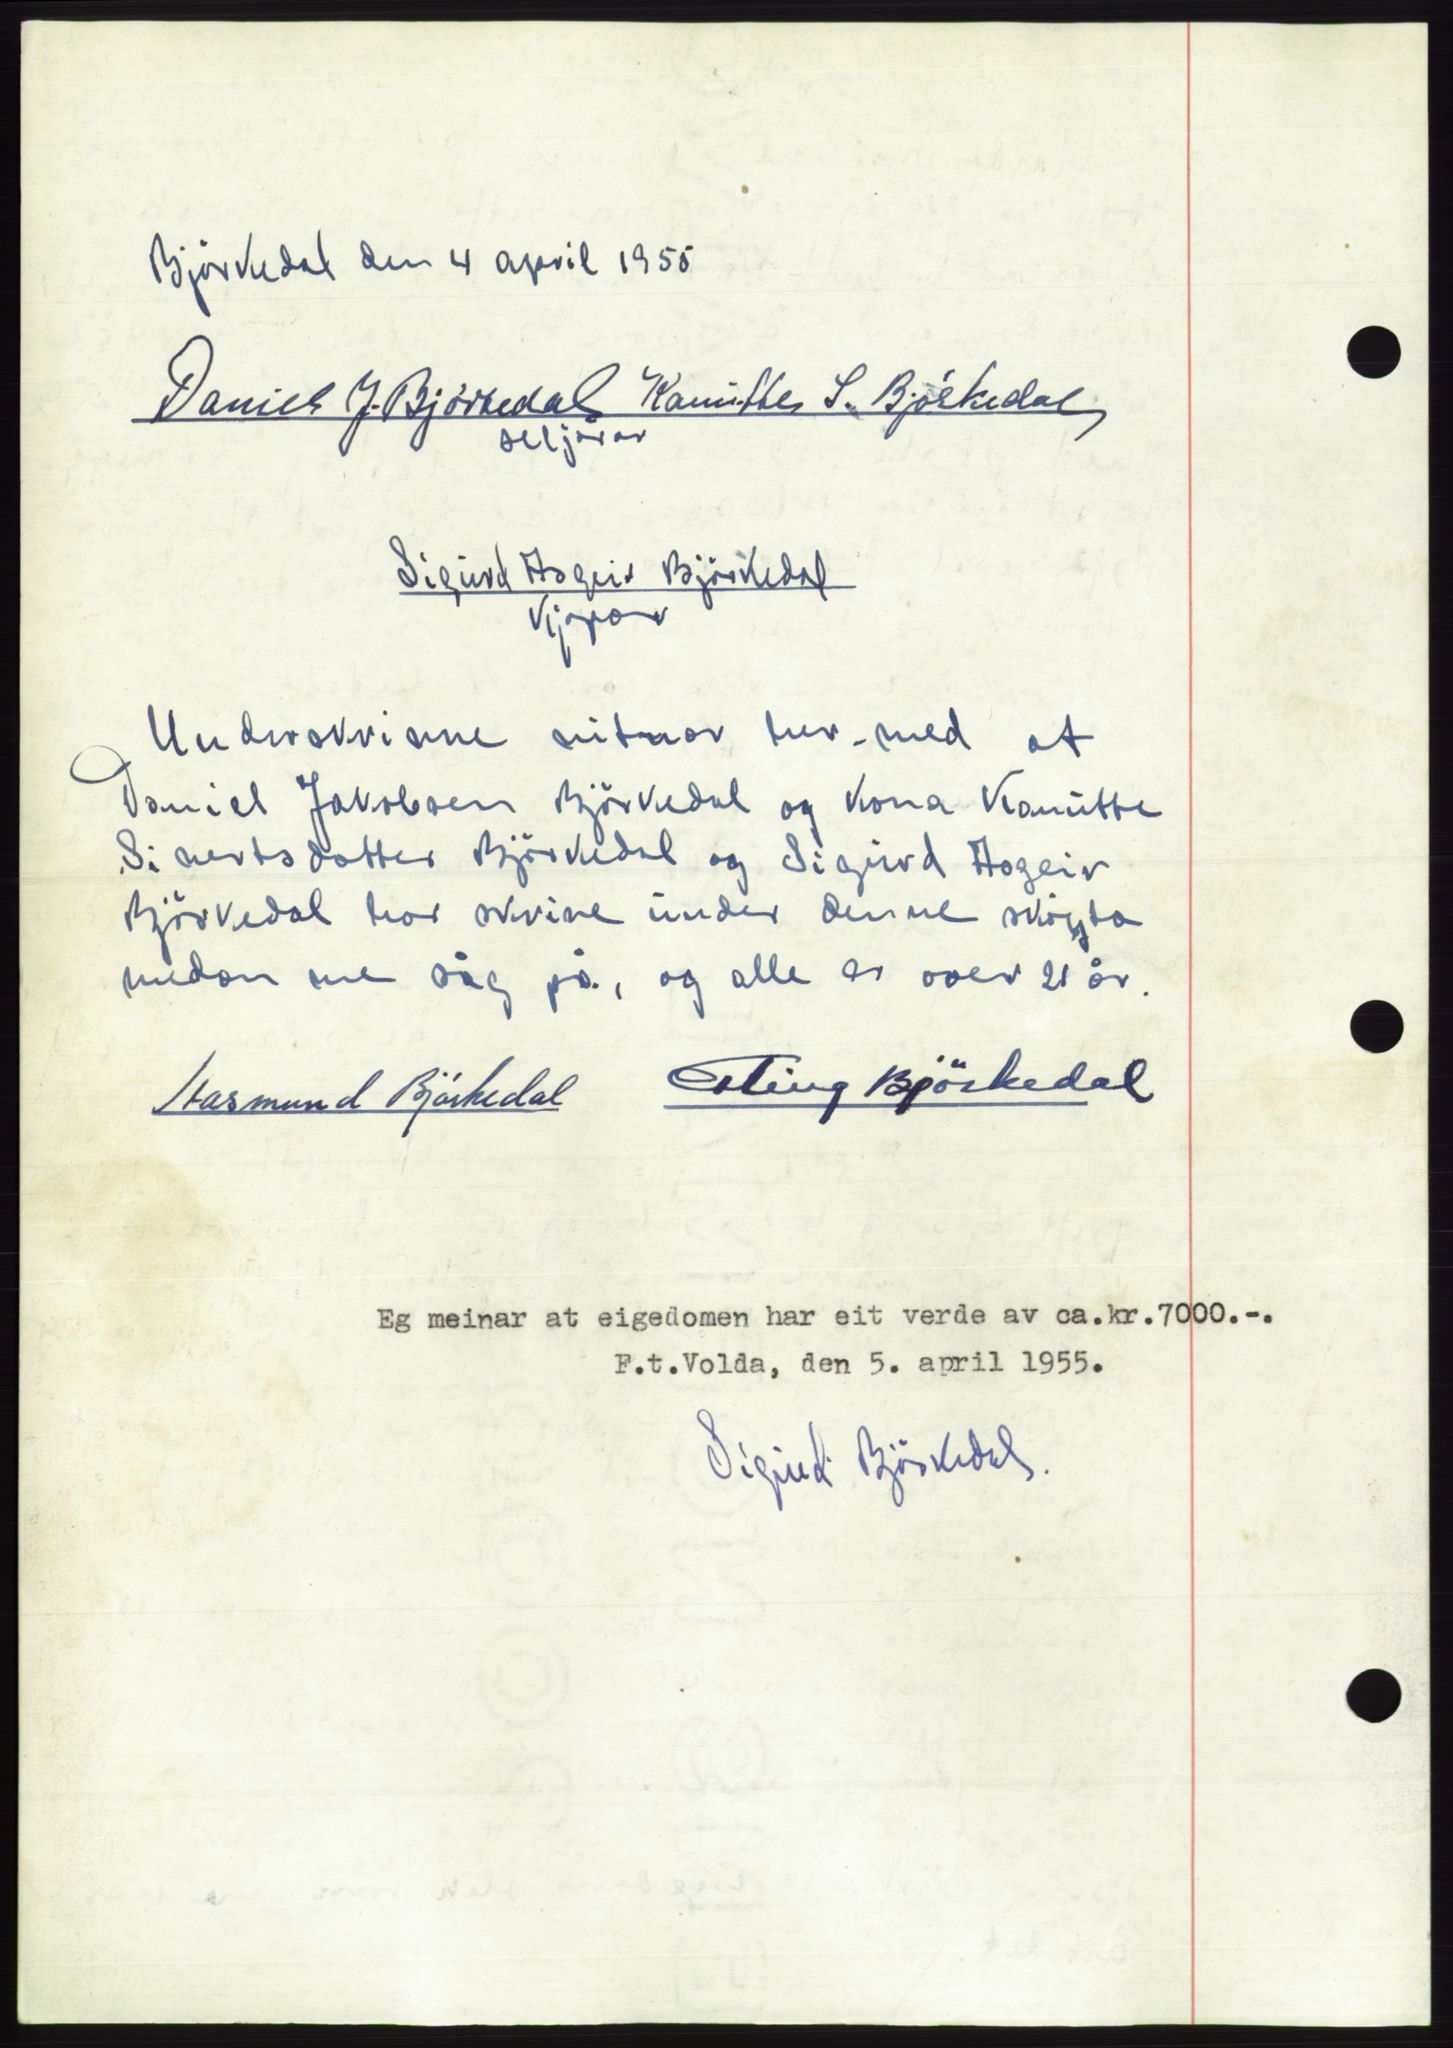 Björkedal den 4 april 1955
Daniel J. Björkedal Kamitte S. Björkedal
seljarar
Sigurd Asgeir Björkedal
kjøpar
Underskrivne vitnar her-med at
Daniel Jakobsen Björkedal og kona Kamitte
Sivertsdotter Björkedal og Sigurd Asgeir
Björkedal har skrive under denne skøyta
medan me såg på, og alle er over 21 år.
Aasmund Björkedal Björkedal
Eg meinar at eigedomen har eit verde av ca.kr.7000.-.
F.t.Volda, den 5. april 1955.
Sigurd Björkedal.